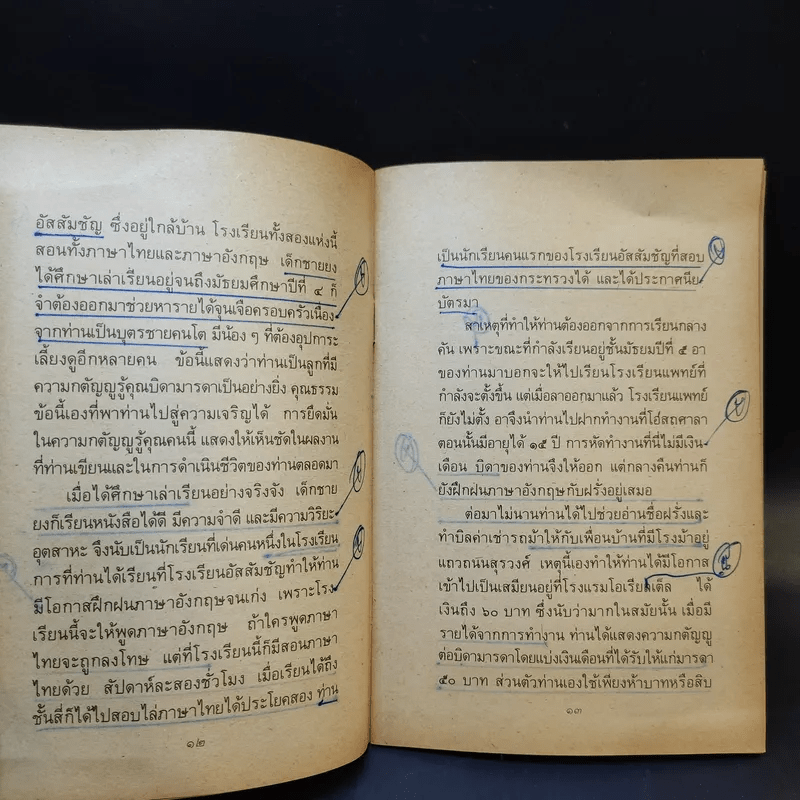 อัสสัมชัญ ซึ่งอยู่ใกล้บ้าน โรงเรียนทั้งสองแห่งนี้
สอนทั้งภาษาไทยและภาษาอังกฤษ เด็กชายยง
ได้ศึกษาเล่าเรียนอยู่จนถึงมัธยมศึกษาปีที่ ๔ ก็
จำต้องออกมาช่วยหารายได้จุนเจือครอบครัวเนื่อง
จากท่านเป็นบุตรชายคนโต มีน้อง ๆ ที่ต้องอุปการะ
เลี้ยงดูอีกหลายคน ข้อนี้แสดงว่าท่านเป็นลูกที่มี
ความกตัญญูรู้คุณบิดามารดาเป็นอย่างยิ่ง คุณธรรม
ข้อนี้เองที่พาท่านไปสู่ความเจริญได้ การยึดมั่น
ในความกตัญญูรู้คุณคนนี้ แสดงให้เห็นชัดในผลงาน
ที่ท่านเขียนและในการดำเนินชีวิตของท่านตลอดมา
เมื่อได้ศึกษาเล่าเรียนอย่างจริงจัง เด็กชาย
ยงก็เรียนหนังสือได้ดี มีความจำดี และมีความวิริยะ
อุตสาหะ จึงนับเป็นนักเรียนที่เด่นคนหนึ่งในโรงเรียน
การที่ท่านได้เรียนที่โรงเรียนอัสสัมชัญทำให้ท่าน
มีโอกาสฝึกฝนภาษาอังกฤษจนเก่ง เพราะโรง-
เรียนนี้จะให้พูดภาษาอังกฤษ ถ้าใครพูดภาษา
ไทยจะถูกลงโทษ แต่ที่โรงเรียนนี้ก็มีสอนภาษา
ไทยด้วย สัปดาห์ละสองชั่วโมง เมื่อเรียนได้ถึง
ชั้นสี่ก็ได้ไปสอบไล่ภาษาไทยได้ประโยคสอง ท่าน
๑๒
เป็นนักเรียนคนแรกของโรงเรียนอัสสัมชัญที่สอบ
ภาษาไทยของกระทรวงได้ และได้ประกาศนีย
บัตรมา
สาเหตุที่ทำให้ท่านต้องออกจากการเรียนกลาง
คัน เพราะขณะที่กำลังเรียนอยู่ชั้นมัธยมปีที่ ๕ อา
ของท่านมาบอกจะให้ไปเรียนโรงเรียนแพทย์ที่
กำลังจะตั้งขึ้น แต่เมื่อลาออกมาแล้ว โรงเรียนแพทย์
ก็ยังไม่ตั้ง อาจึงนำท่านไปฝากทำงานที่โอ๋สถศาลา
ตอนนั้นมีอายุได้ ๑๕ ปี การหัดทำงานที่นี่ไม่มีเงิน
เดือน บิดาของท่านจึงให้ออก แต่กลางคืนท่านก็
ยังฝึกฝนภาษาอังกฤษกับฝรั่งอยู่เสมอ
ต่อมาไม่นานท่านได้ไปช่วยอ่านชื่อฝรั่งและ
ทำบิลค่าเช่ารถม้าให้กับเพื่อนบ้านที่มีโรงม้าอยู่
แถวถนนสุรวงศ์ เหตุนี้เองทำให้ท่านได้มีโอกาส
เข้าไปเป็นเสมียนอยู่ที่โรงแรมโอเรียลเต็ล ได้
เงินถึง ๖๐ บาท ซึ่งนับว่ามากในสมัยนั้น เมื่อมี
รายได้จากการทำงาน ท่านได้แสดงความกตัญญู
ต่อบิดามารดาโดยแบ่งเงินเดือนที่ได้รับให้แก่มารดา
๕๐ บาท ส่วนตัวท่านเองใช้เพียงห้าบาทหรือสิบ
๑๓